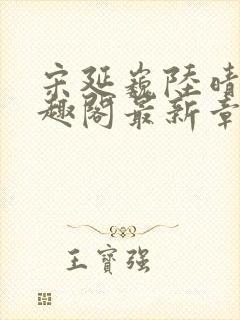 宋延巍陸晴
趣閣最新章
王寶強